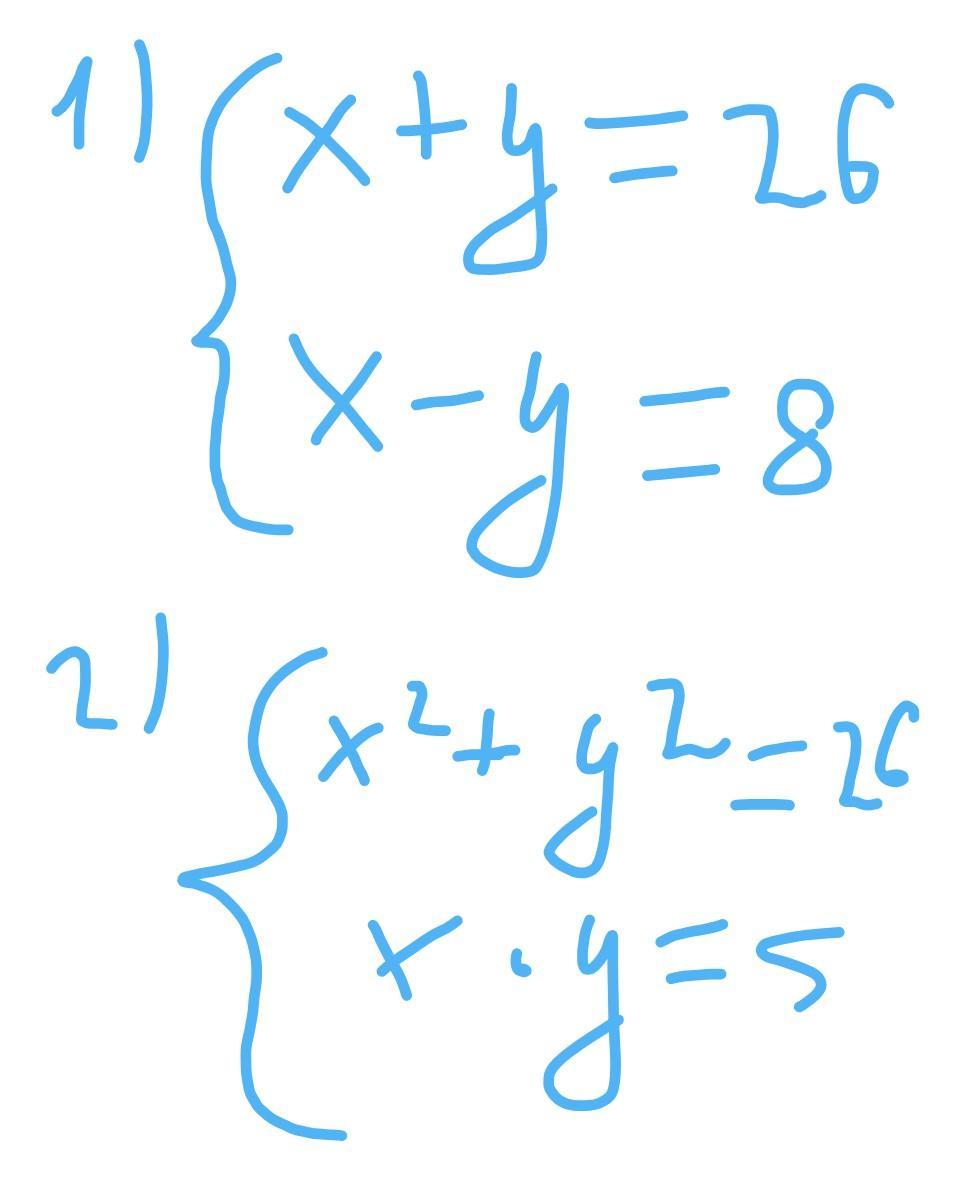 1) { x + y = 26
x - y = 8
2) { x² + y² = 26
x · y = 5